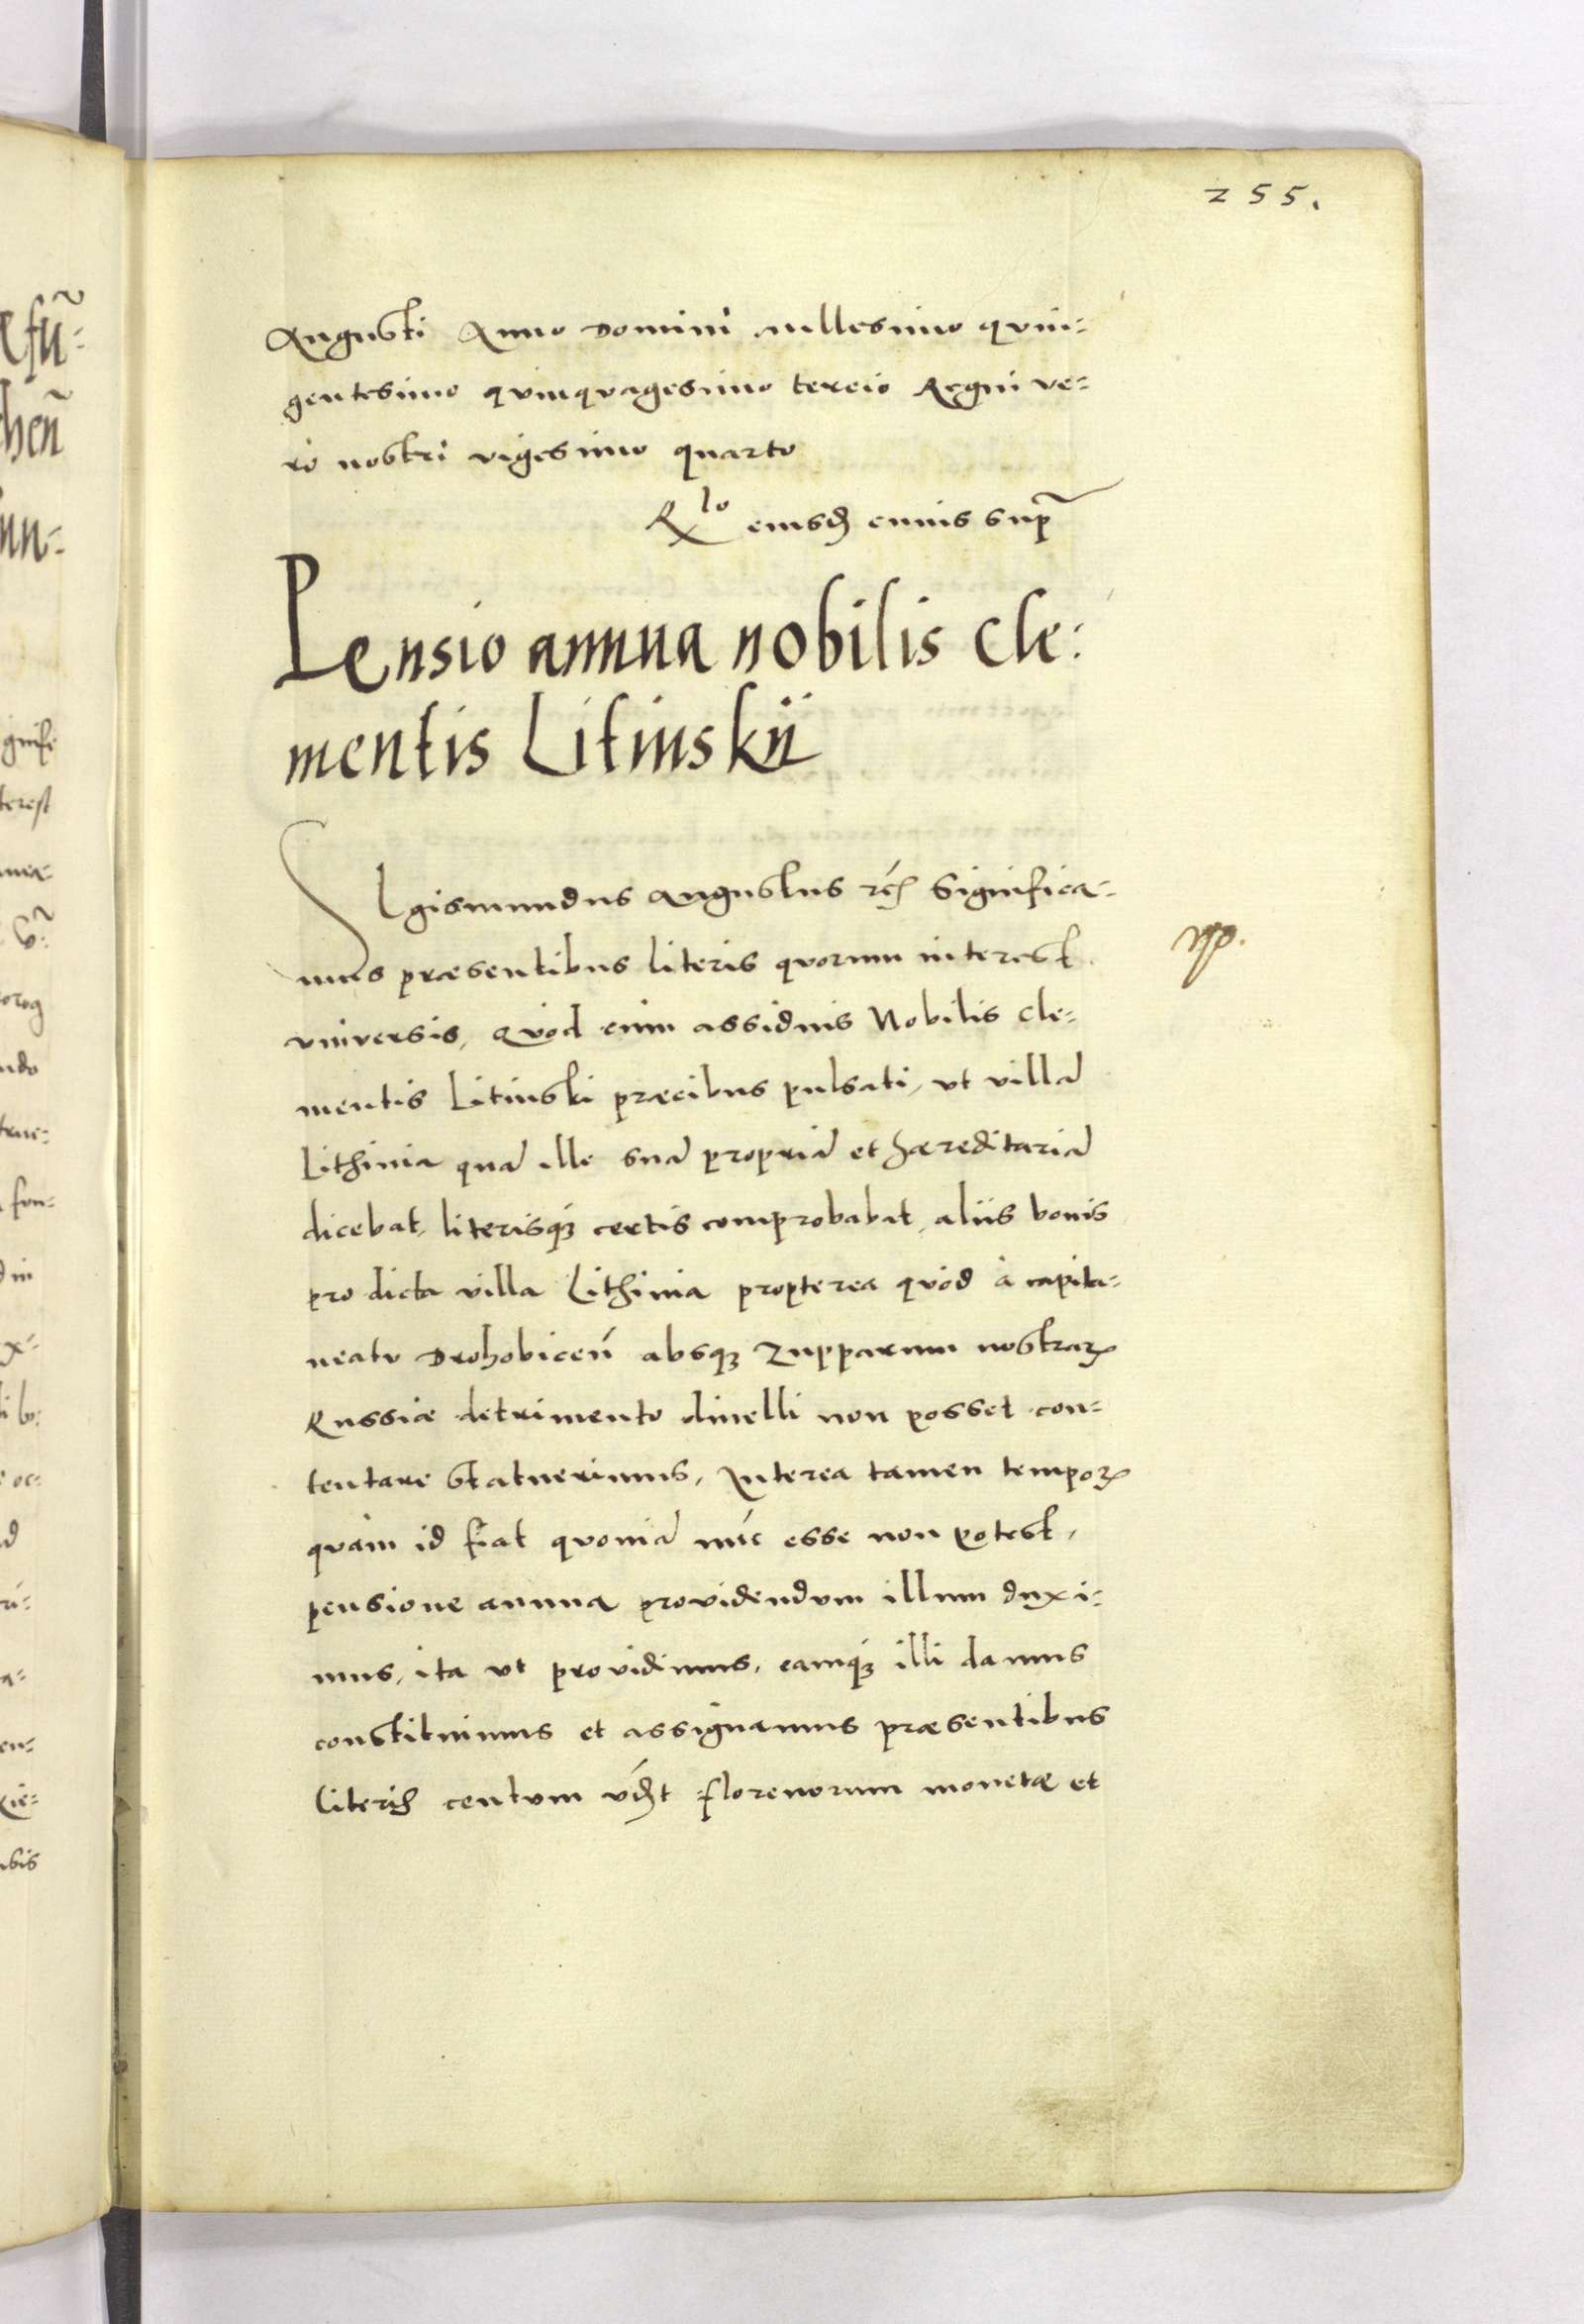 255.
Augusti Anno Domini millesimo quin=
gentesimo qvinqvagesimo tercio Regni ve=
ro nostri vigesimo quarto
R^lo eiusđ cuius supꝛ
Pensio annua nobilis Cle:
mentis Litinskij
SIgismundus Augustus rē Significa=
mus præsentibus literis qvorum interest
vniversis, Qvod cum assiduis Nobilis Cle=
mentis Litinski præcibus pulsati, vt villā
Lithinia quā ille suā propriā et hæreditariā
dicebat, literisqꝫ certis comprobabat, aliis bonis
pro dicta villa Lithinia propterea qvod à capita=
neatu Drohobiceñ absqꝫ Zupparum nostraꝝ
Russiæ detrimento divelli non posset con=
tentare statuerimus, Interea tamen tempoꝝ
qvàm id fiat qvoniā nūc esse non potest,
pensione annua providendvm illum duxi=
mus, ita vt providimus, eamqꝫ illi damus
constituimus et assignamus præsentibus
literis centvm vdꝫt florenorum monetæ et